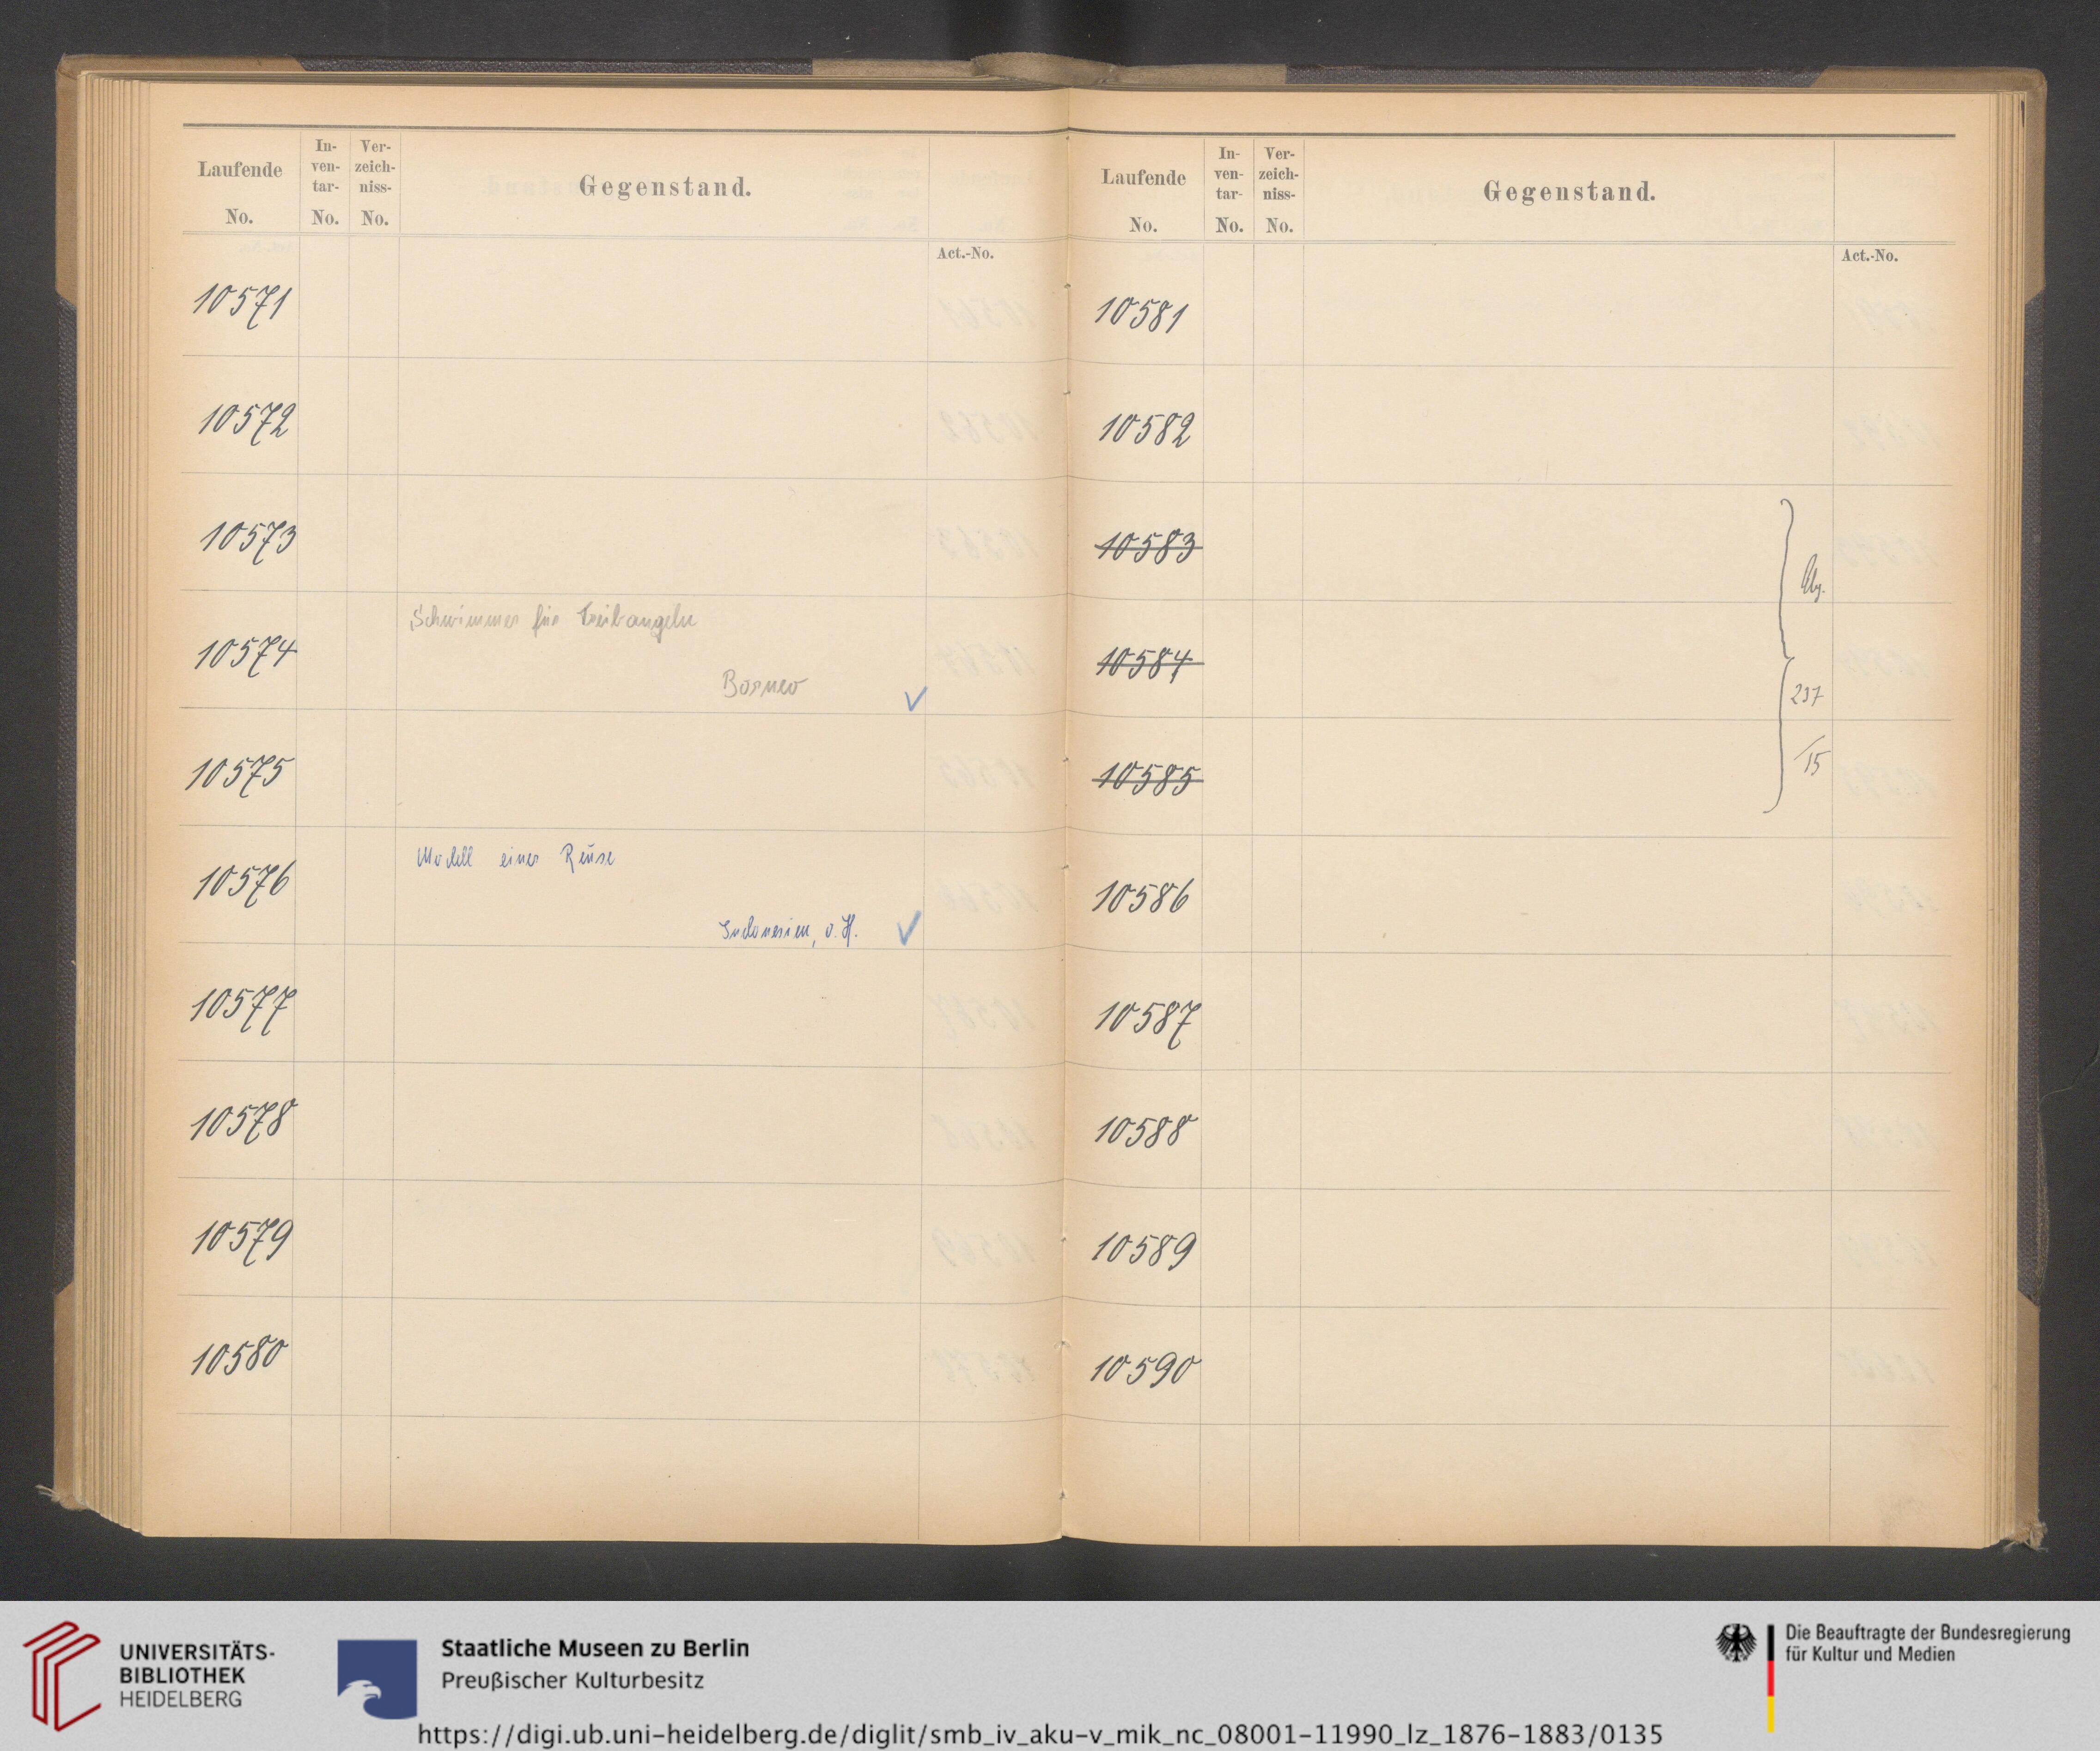 Laufende
No.
In-
ven-
tar-
No.
Ver-
zeich-
niss-
No.
Gegenstand.
Act.-No.
10571
10572
10573
10574
Schwimmer für Treibangeln
Borneo ✓
10575
10576
Modell einer Reuse
Indonesien, o. H. ✓
10577
10578
10579
10580
Laufende
No.
In-
ven-
tar-
No.
Ver-
zeich-
niss-
No.
Gegenstand.
Act.-No.
10581
10582
10583
10584
237
10585
/15
10586
10587
10588
10589
10590
UNIVERSITÄTS-
BIBLIOTHEK
HEIDELBERG
Staatliche Museen zu Berlin
Preußischer Kulturbesitz
Die Beauftragte der Bundesregierung
für Kultur und Medien
https://digi.ub.uni-heidelberg.de/diglit/smb_iv_aku-v_mik_nc_08001-11990_lz_1876-1883/0135